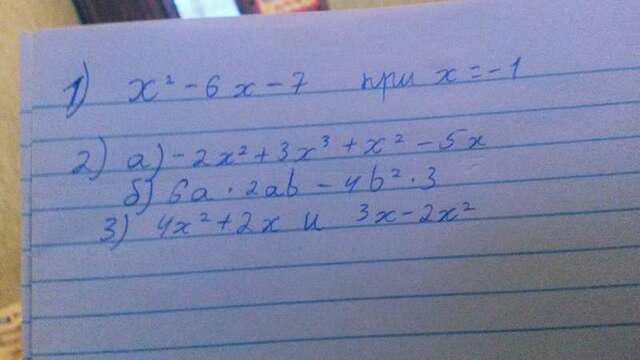 1) x² - 6x - 7 при x = -1
2) а) -2x² + 3x³ + x² - 5x
б) 6a · 2ab - 4b² · 3
3) 4x² + 2x и 3x - 2x²